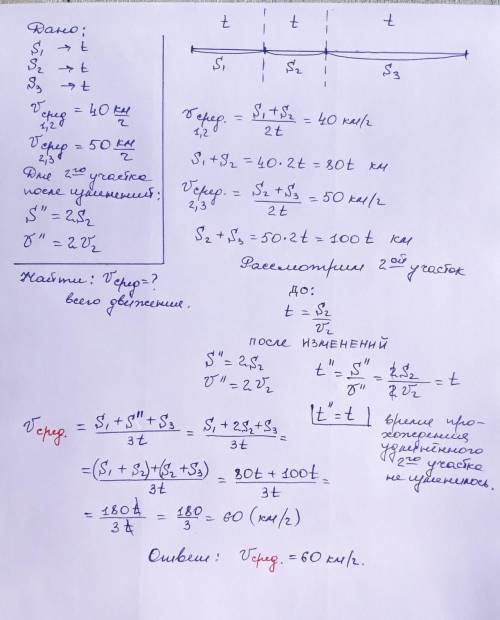 Дано:
S₁ → t
S₂ → t
S₃ → t
Vсред 1,2 = 40 км/ч
Vсред 2,3 = 50 км/ч
Для 2го участка
после изменений:
S" = 2S₂
V" = 2V₂
Найти: Vсред = ?
всего движения.
t t t
S₁ S₂ S₃
Vсред. 1,2 = (S₁ + S₂)/2t = 40 км/ч
S₁ + S₂ = 40 · 2t = 80t км
Vсред. 2,3 = (S₂ + S₃)/2t = 50 км/ч
S₂ + S₃ = 50 · 2t = 100t км
Рассмотрим 2ой участок
до:
t = S₂/V₂
после изменений
S" = 2S₂
V" = 2V₂
t" = S"/V" = 2S₂/2V₂ = t
|t" = t| время про-
хождения
удлинённого
2го участка
не изменилось.
Vсред. = (S₁ + S" + S₃)/3t = (S₁ + 2S₂ + S₃)/3t =
= ((S₁ + S₂) + (S₂ + S₃))/3t = (80t + 100t)/3t =
= 180t/3t = 180/3 = 60 (км/ч)
Ответ: Vсред. = 60 км/ч.